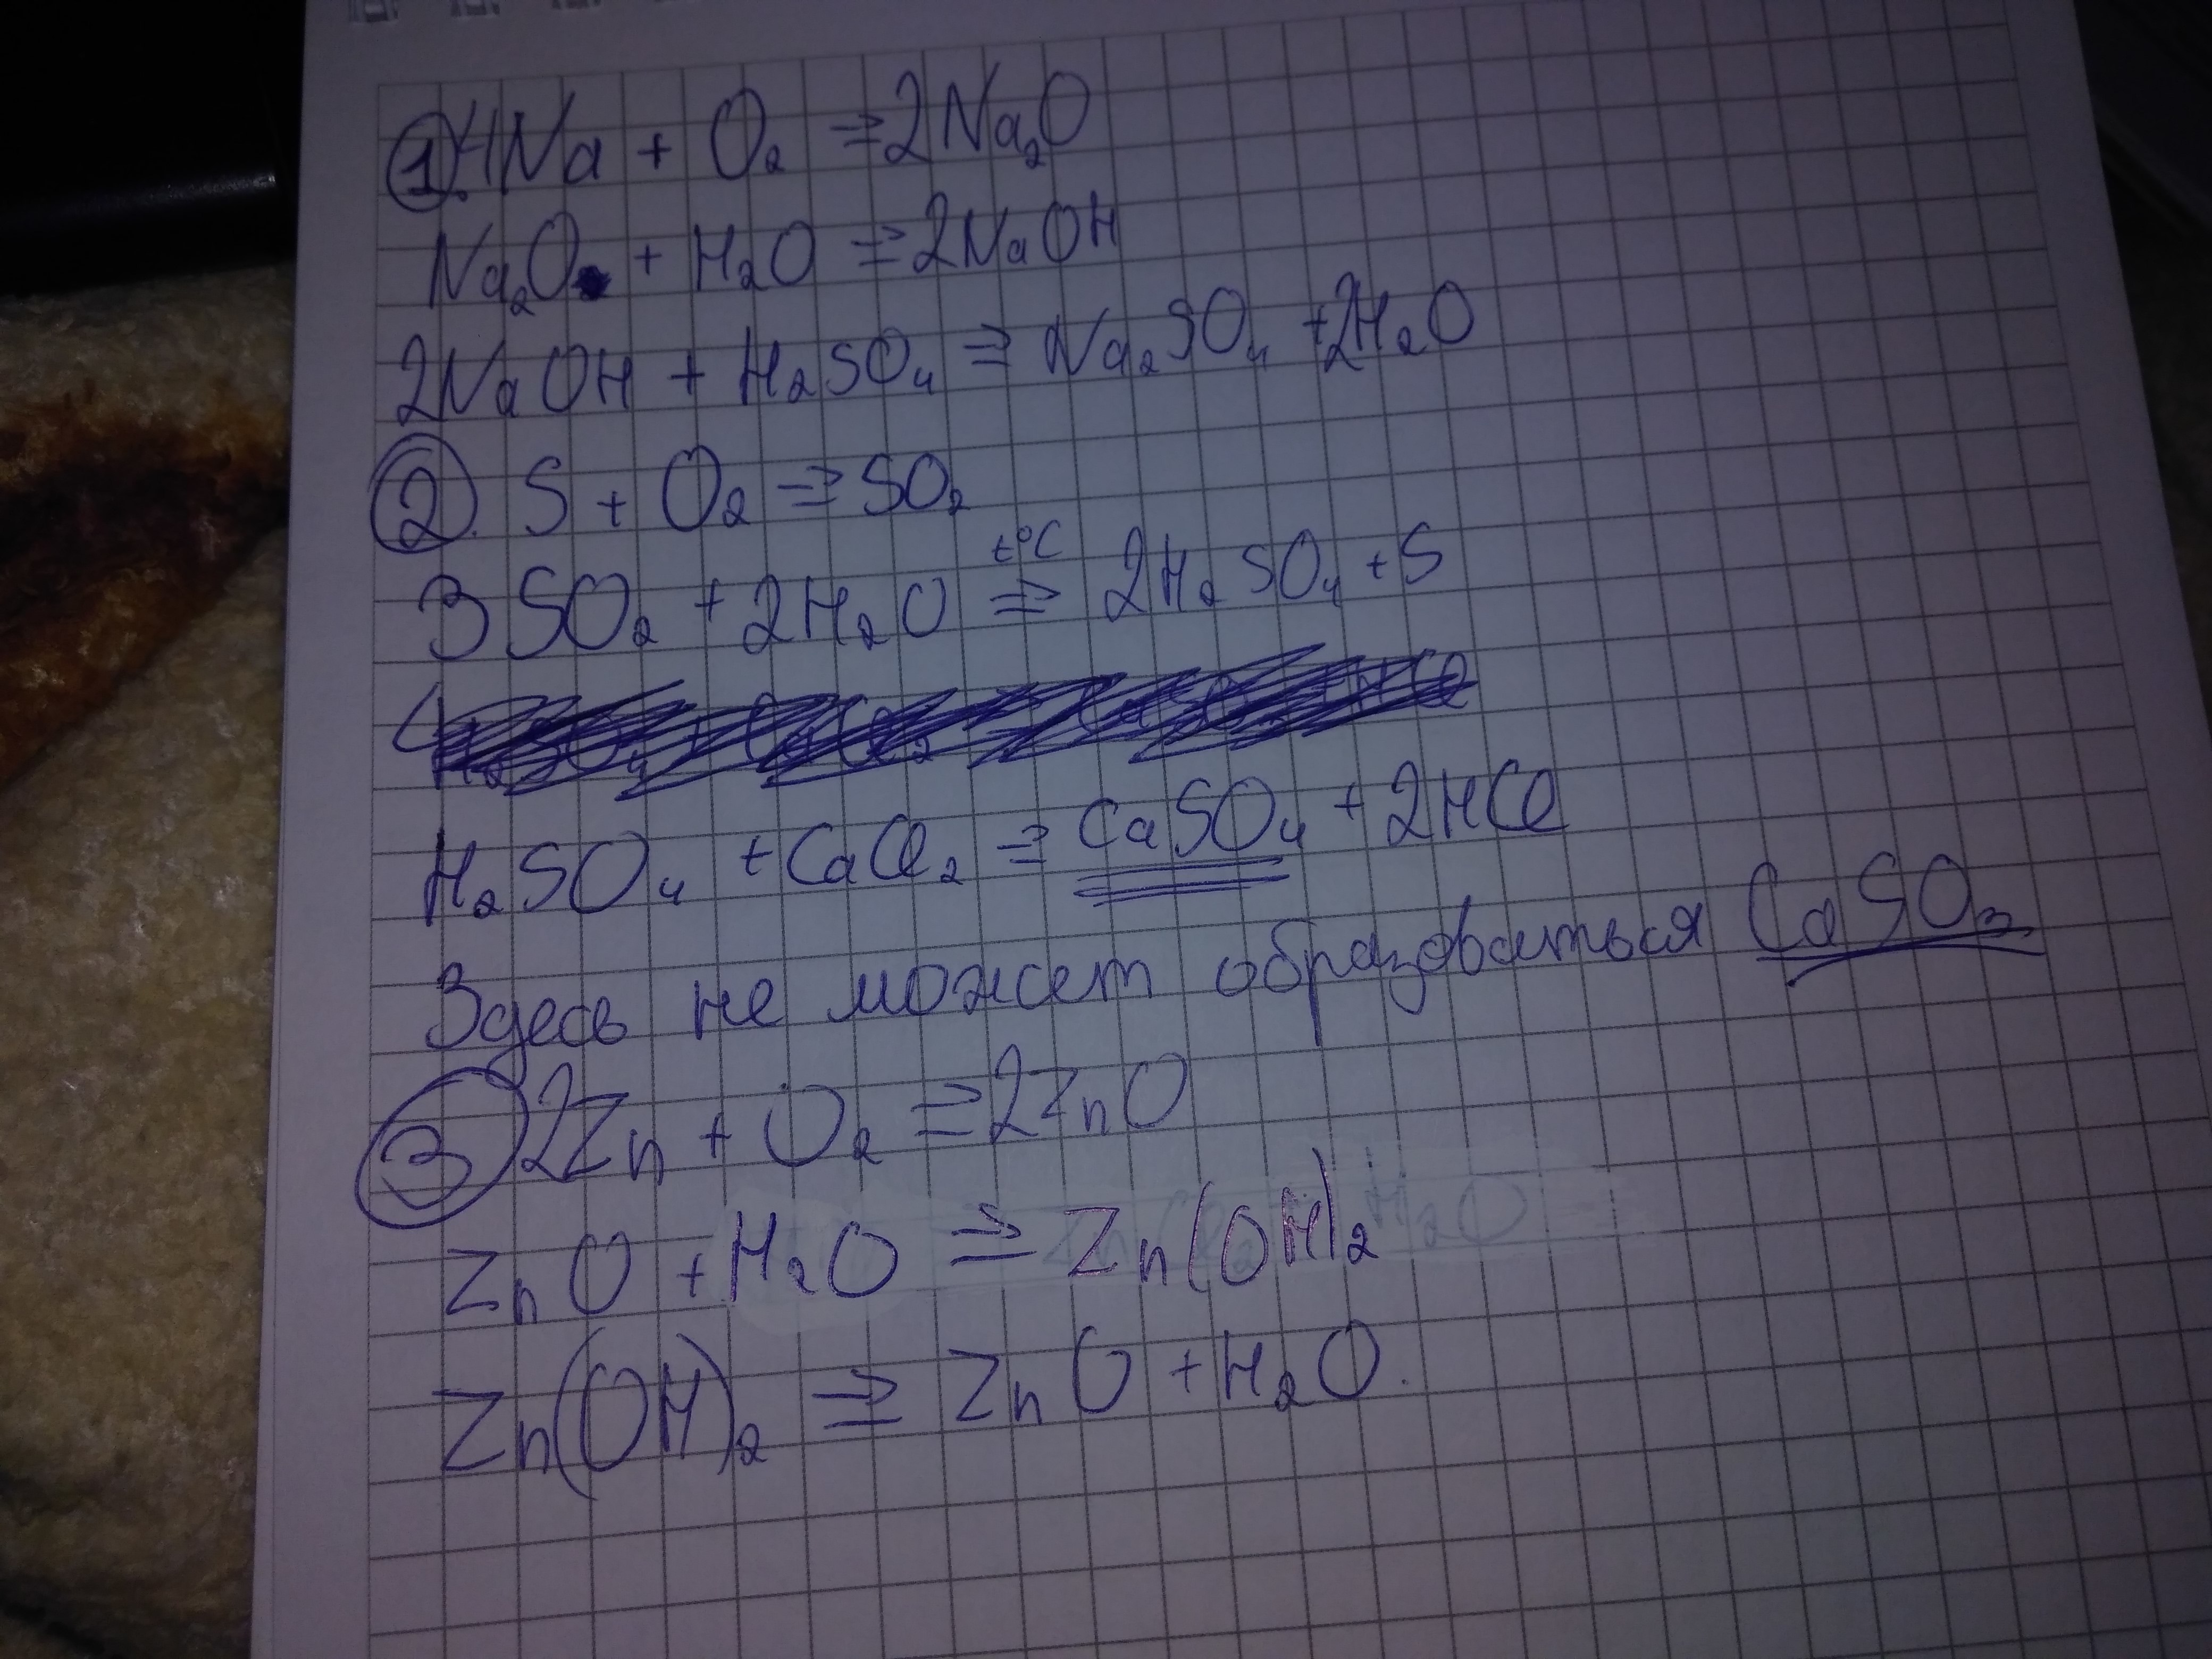 1. 4Na + O₂ => 2Na₂O
Na₂O + H₂O => 2NaOH
2NaOH + H₂SO₄ => Na₂SO₄ + 2H₂O
2. S + O₂ => SO₂
3SO₂ + 2H₂O =t°C=> 2H₂SO₄ + S
H₂SO₄ + CaCl₂ => CaSO₄ + 2HCl
Здесь не может образоваться CaSO₃
3 2Zn + O₂ => 2ZnO
ZnO + H₂O => Zn(OH)₂
Zn(OH)₂ => ZnO + H₂O.